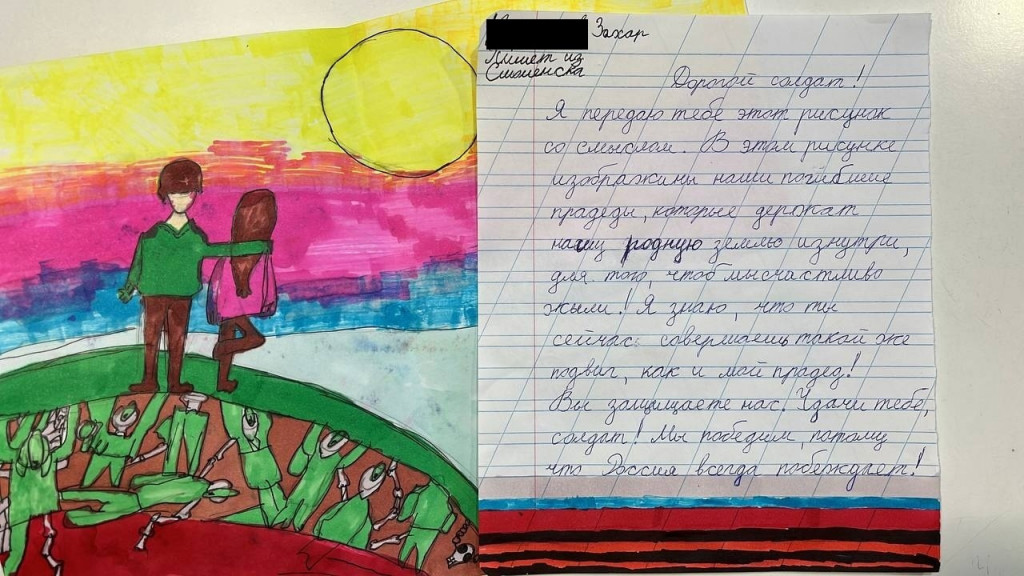 Захар
Пишет из
Смоленска
Дорогой солдат!
Я передаю тебе этот рисунок
со смыслом. В этом рисунке
изображины наши погибшие
прадеды, которые держат
нашу родную землю изнутри,
для того, чтоб мы счастливо
жыли! Я знаю, что ты
сейчас совершаешь такой же
подвиг, как и мой прадед!
Вы защищаете нас. Удачи тебе,
солдат! Мы победим, потому
что Россия всегда побеждает!